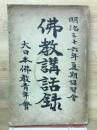 明治三十六年夏期講習會
佛教講話録
大日本佛教青年會